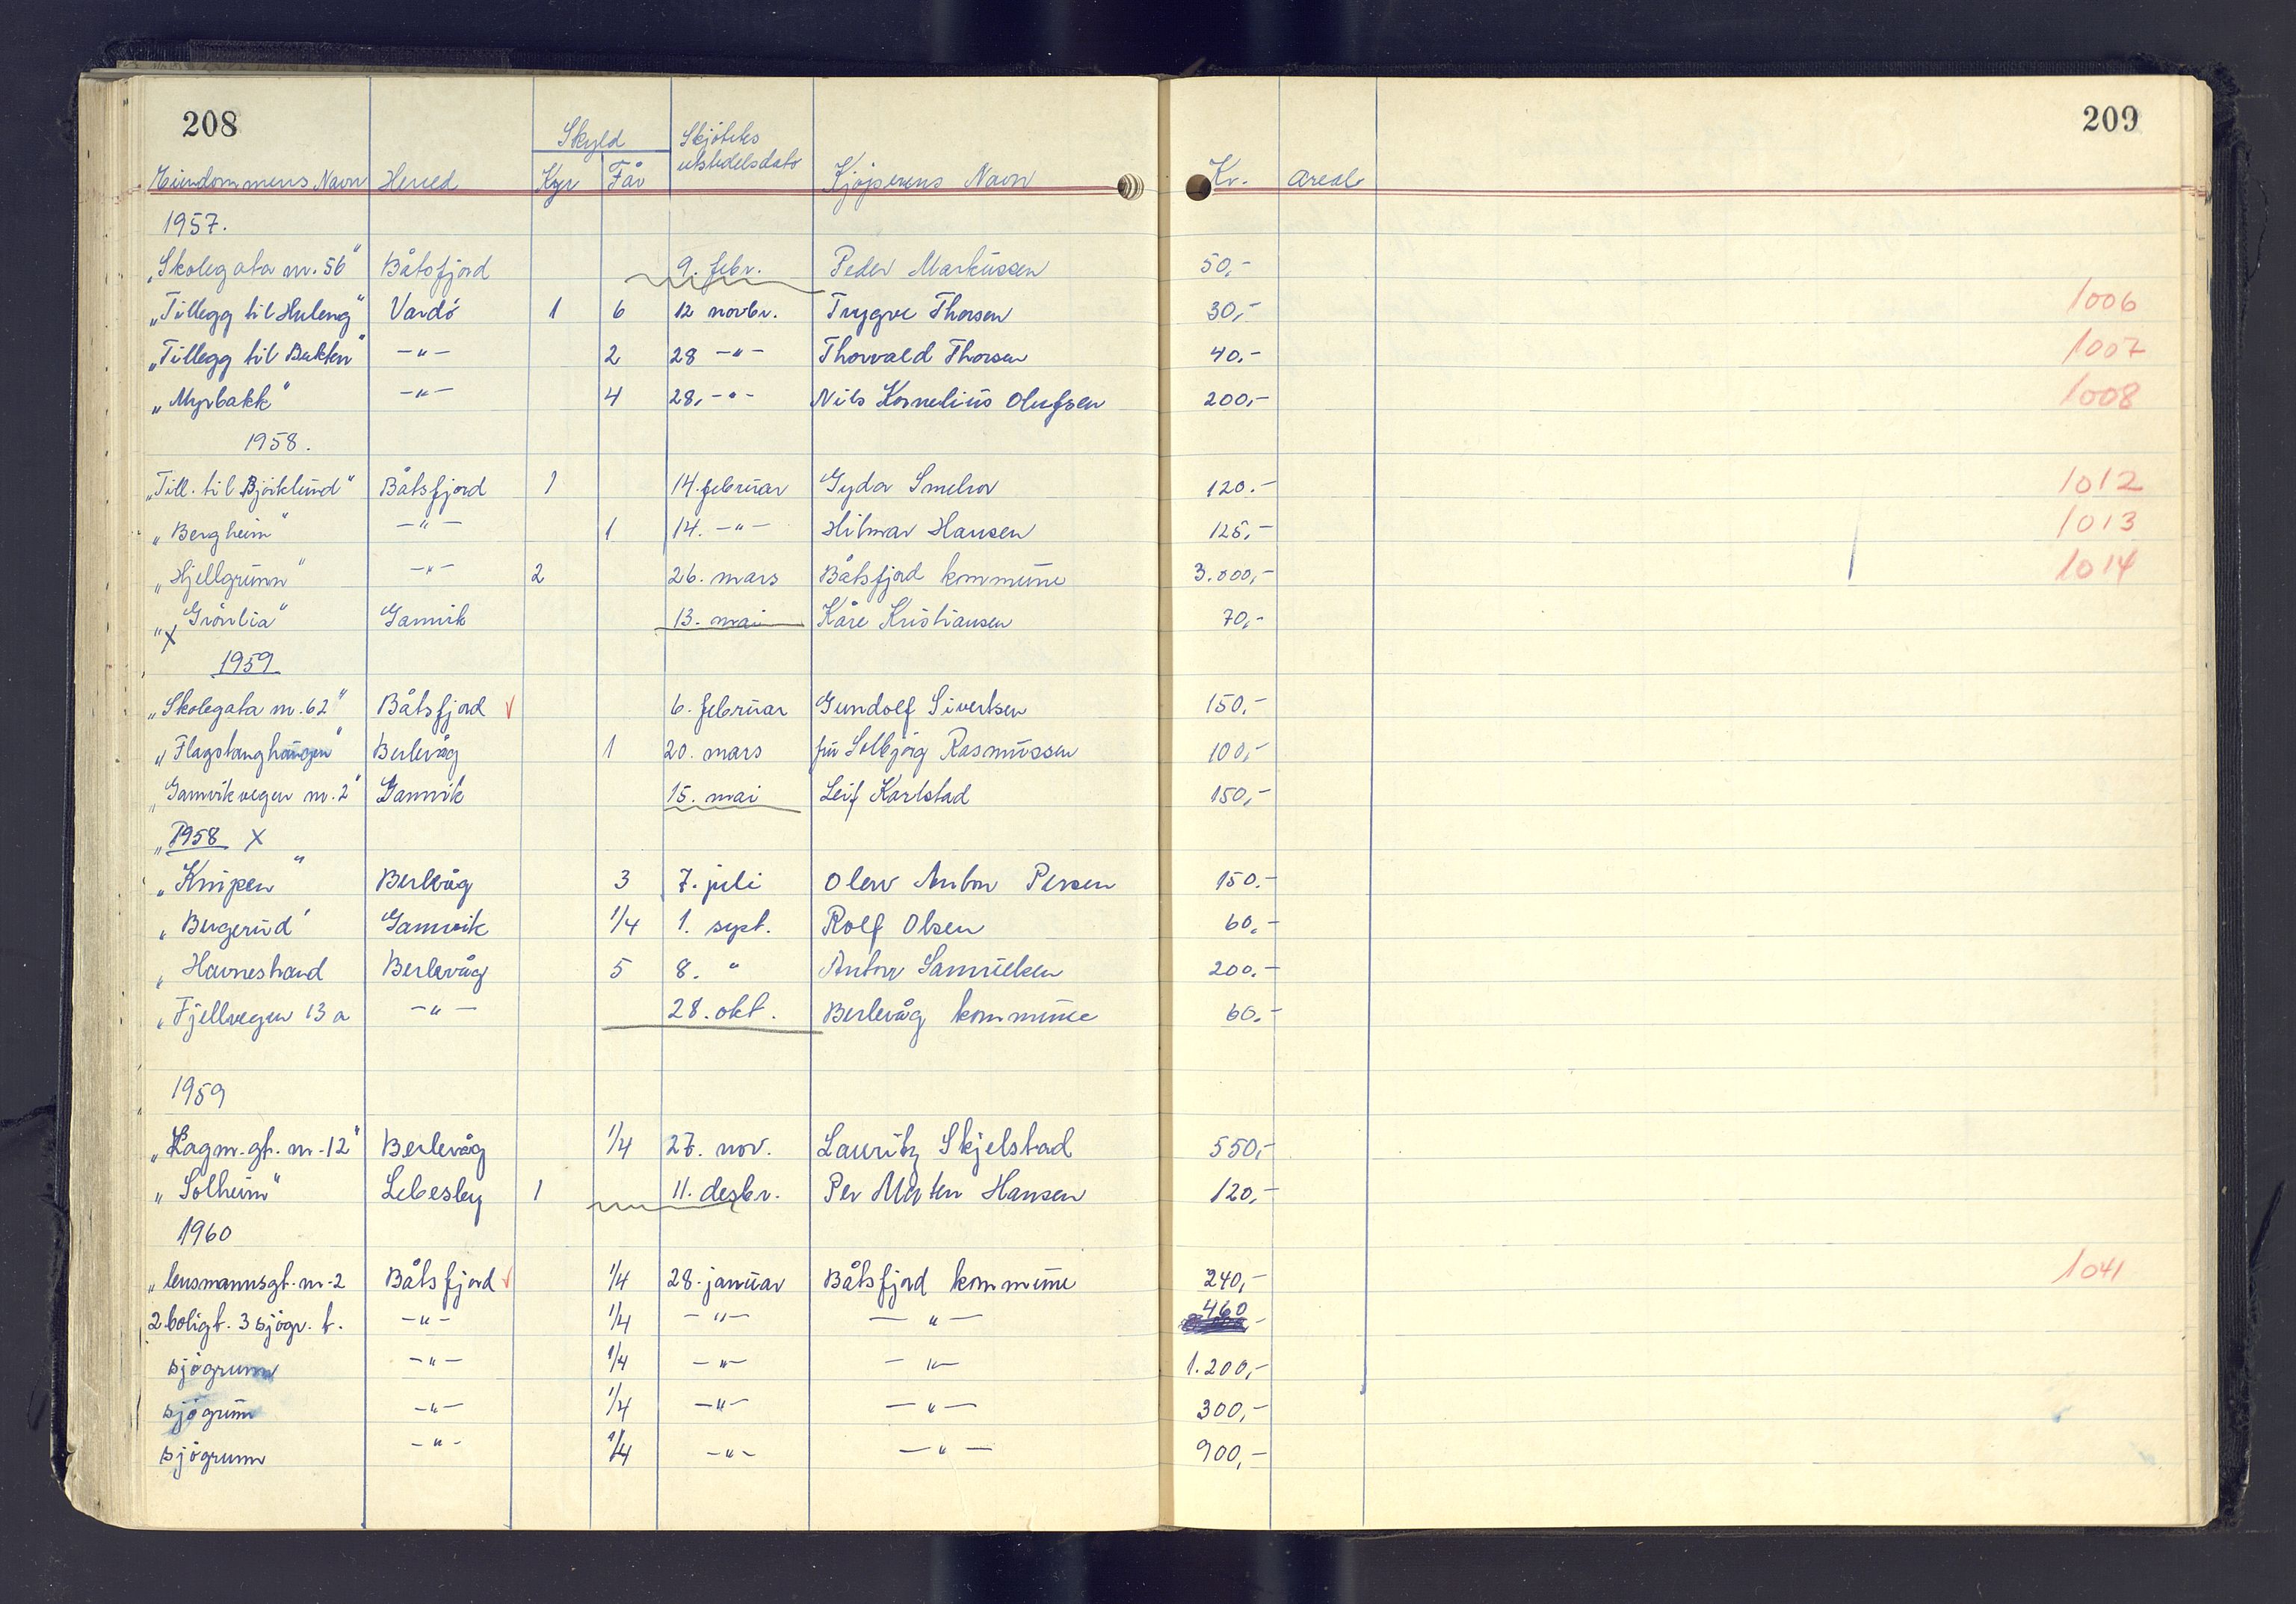 208 209
Skyld Skjötets
Eiendommens Navn Herred Kyr Får utstedelsdato Kjøperens Navn Kr. Areal
1957.
„Skolegata nr. 56" Båtsfjord 9. febr. Peder Markussen 50,-
„Tillegg til Huleng" Vardö 1 6 12 novbr. Trygve Thorsen 30,- 1006
„Tillegg til Bakken" -"- 2 28 -"- Thorvald Thorsen 40.- 1007
„Myrbakk" -"- 4 28. -"- Nils Kornelius Olufsen 200,- 1008
1958.
„Till. til Björklund" Båtsfjord 1 14. februar Gyda Smelror 120.- 1012
„Bergheim" -"- 1 14. -"- Hilmar Hansen 125,- 1013
„Hjellgrunn" -"- 2 26. mars Båtsfjord kommune 3.000,- 1014
„Grönlia" Gamvik 13. mai Kåre Kristiansen 70,-
x
1959
„Skolegata nr. 62" Båtsfjord √ 6. februar Gundolf Sivertsen 150,-
„Flagstanghaugen" Berlevåg 1 20. mars fru Solbjörg Rasmussen 100,-
„Gamvikvegen nr. 2" Gamvik 15. mai Leif Karlstad 150,-
„1958 x
„Knipen" Berlevåg 3 7. juli Olav Anton Persen 150.-
„Bergerud" Gamvik 1/4 1. sept. Rolf Olsen 60.-
„Havnestrand Berlevåg 5 8. " Anton Samuelsen 200.-
„Fjellvegen 13 a -"- 28. okt. Berlevåg kommune 60.-
1959
„Lagm. gt. nr. 12" Berlevåg 1/4 27. nov. Lauritz Skjelstad 550,-
„Solheim" Lebesby 1 11. desbr. Per Morten Hansen 120,-
1960
„lensmannsgt. nr. 2 Båtsfjord √ 1/4 28. januar Båtsfjord kommune 240,- 1041
2 boligt. 3 sjögr. t. -"- 1/4 -"- -"- 460 -
sjögrunn -"- 1/4 -"- -"- 1.200,-
sjögrunn -"- 1/4 -"- -"- 300,-
sjögrunn -"- 1/4 -"- -"- 900,-